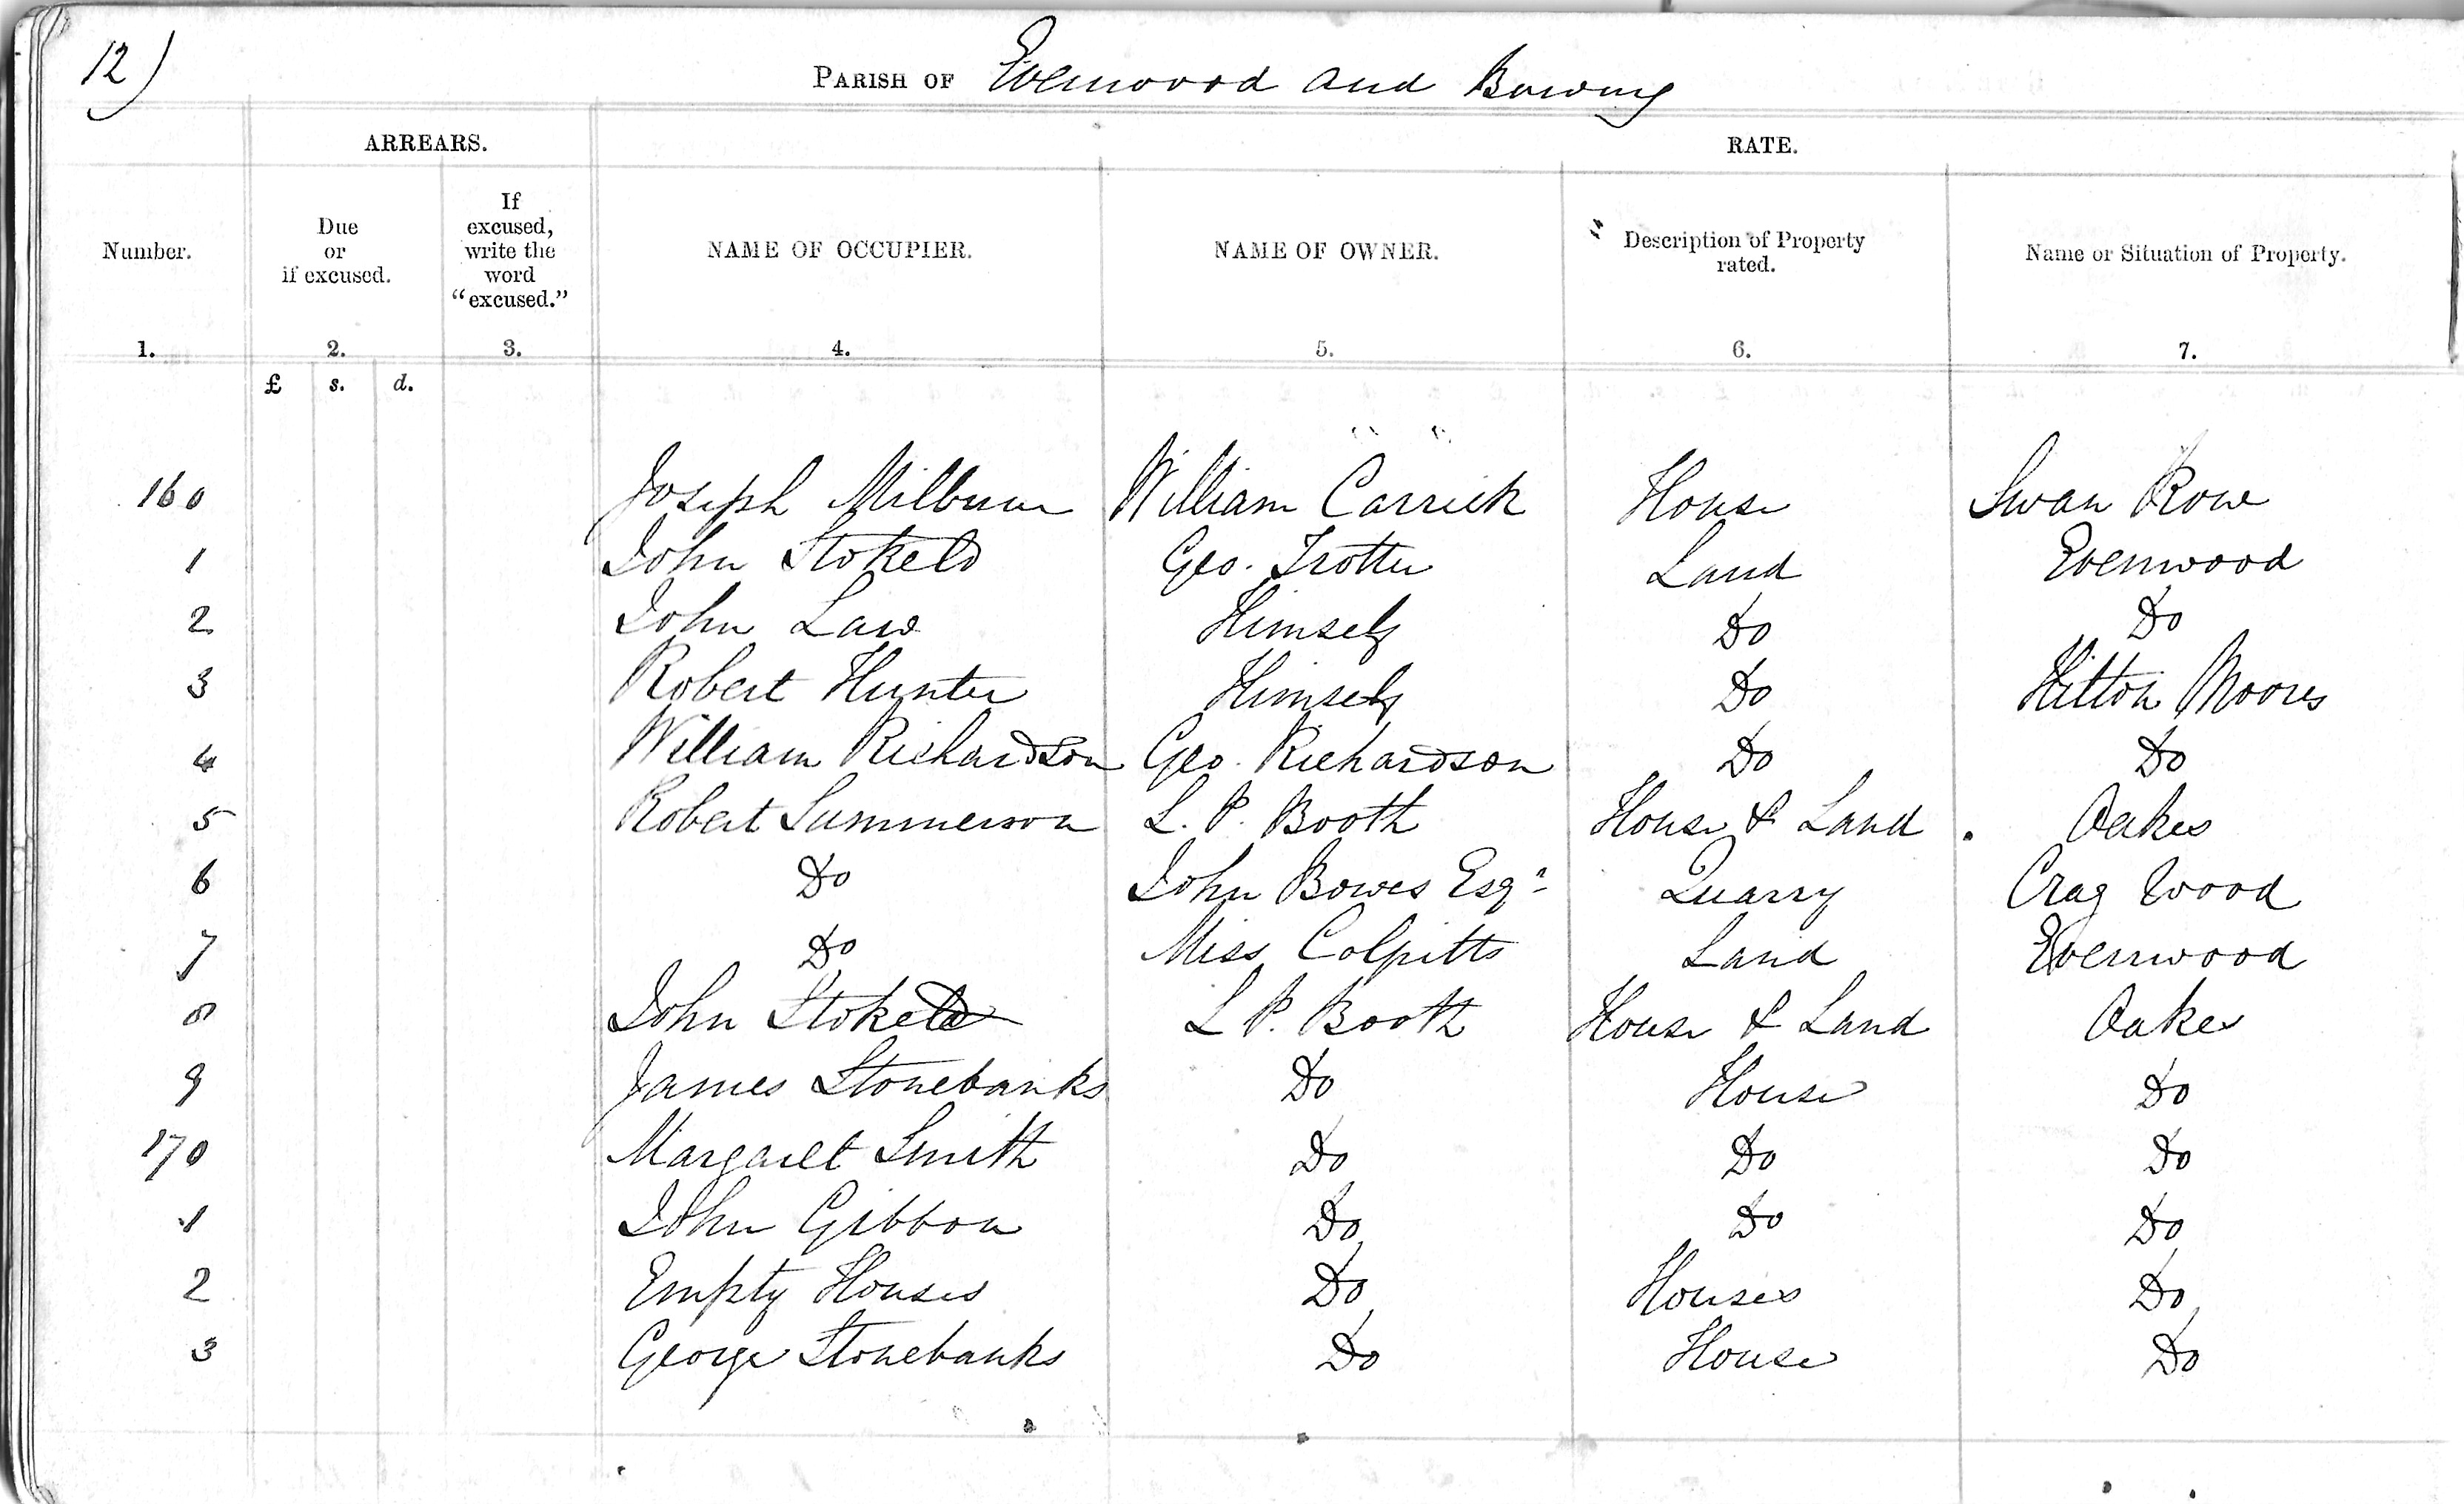 12)
PARISH OF Evenwood and Barony
ARREARS. RATE.
Number. Due or if excused. If excused, write the word "excused." NAME OF OCCUPIER. NAME OF OWNER. Description of Property rated. Name or Situation of Property.
1. 2. 3. 4. 5. 6. 7.
£ s. d.
160 Joseph Milburn William Carrick House Swan Row
1 John Stokeld Geo. Trotter Land Evenwood
2 John Law Himself Do Do
3 Robert Hunter Himself Do Hilton Moores
4 William Richardson Geo. Richardson Do Do
5 Robert Summerson L. P. Booth House & Land Oakes
6 Do John Bowes Esqr Quarry Crag Wood
7 Do Miss Colpitts Land Evenwood
8 John Stokeld L P. Booth House & Land Oakes
9 James Stonebanks Do House Do
170 Margaret Smith Do Do Do
1 John Gibbon Do Do Do
2 Empty Houses Do Houses Do
3 George Stonebanks Do House Do